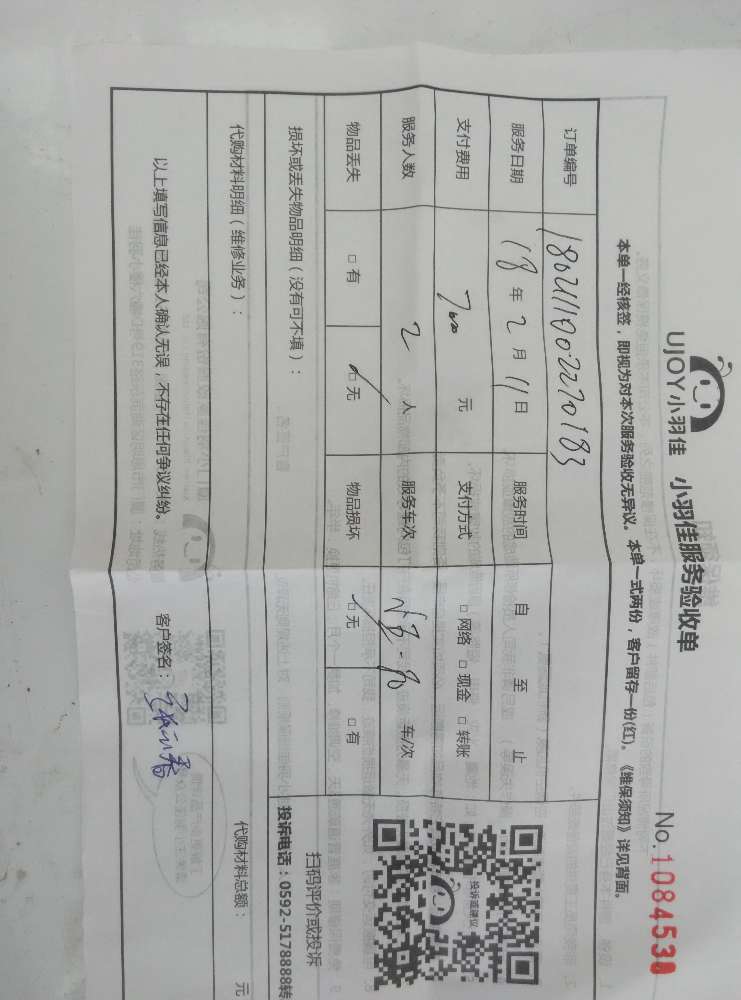 UJOY小羽佳 小羽佳服务验收单
No.1084538
本单一经核签，即视为对本次服务验收无异议。本单一式两份，客户留存一份(红)。《维保须知》详见背面。
订单编号 1802111002270183
服务日期 18年2月11日 服务时间 自 至 止
支付费用 元 支付方式 □网络 □现金 □转账
服务人数 2人 服务车次 车/次
物品丢失 □有 □无 物品损坏 □无 □有
投诉或建议
扫码评价或投诉
投诉电话：0592-5178888转
损坏或丢失物品明细（没有可不填）：
代购材料明细（维修业务）： 代购材料总额： 元
以上填写信息已经本人确认无误，不存在任何争议纠纷。 客户签名：